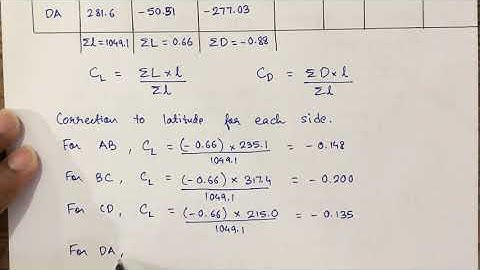 DA 281.6 -50.51 -277.03
Σl=1049.1 ΣL = 0.66 ΣD = -0.88
C_L = ΣL×l / Σl C_D = ΣD×l / Σl
Correction to latitude for each side.
For AB, C_L = (-0.66) × 235.1 / 1049.1 = -0.148
For BC, C_L = (-0.66) × 317.4 / 1049.1 = -0.200
For CD, C_L = (-0.66) × 215.0 / 1049.1 = -0.135
For DA,